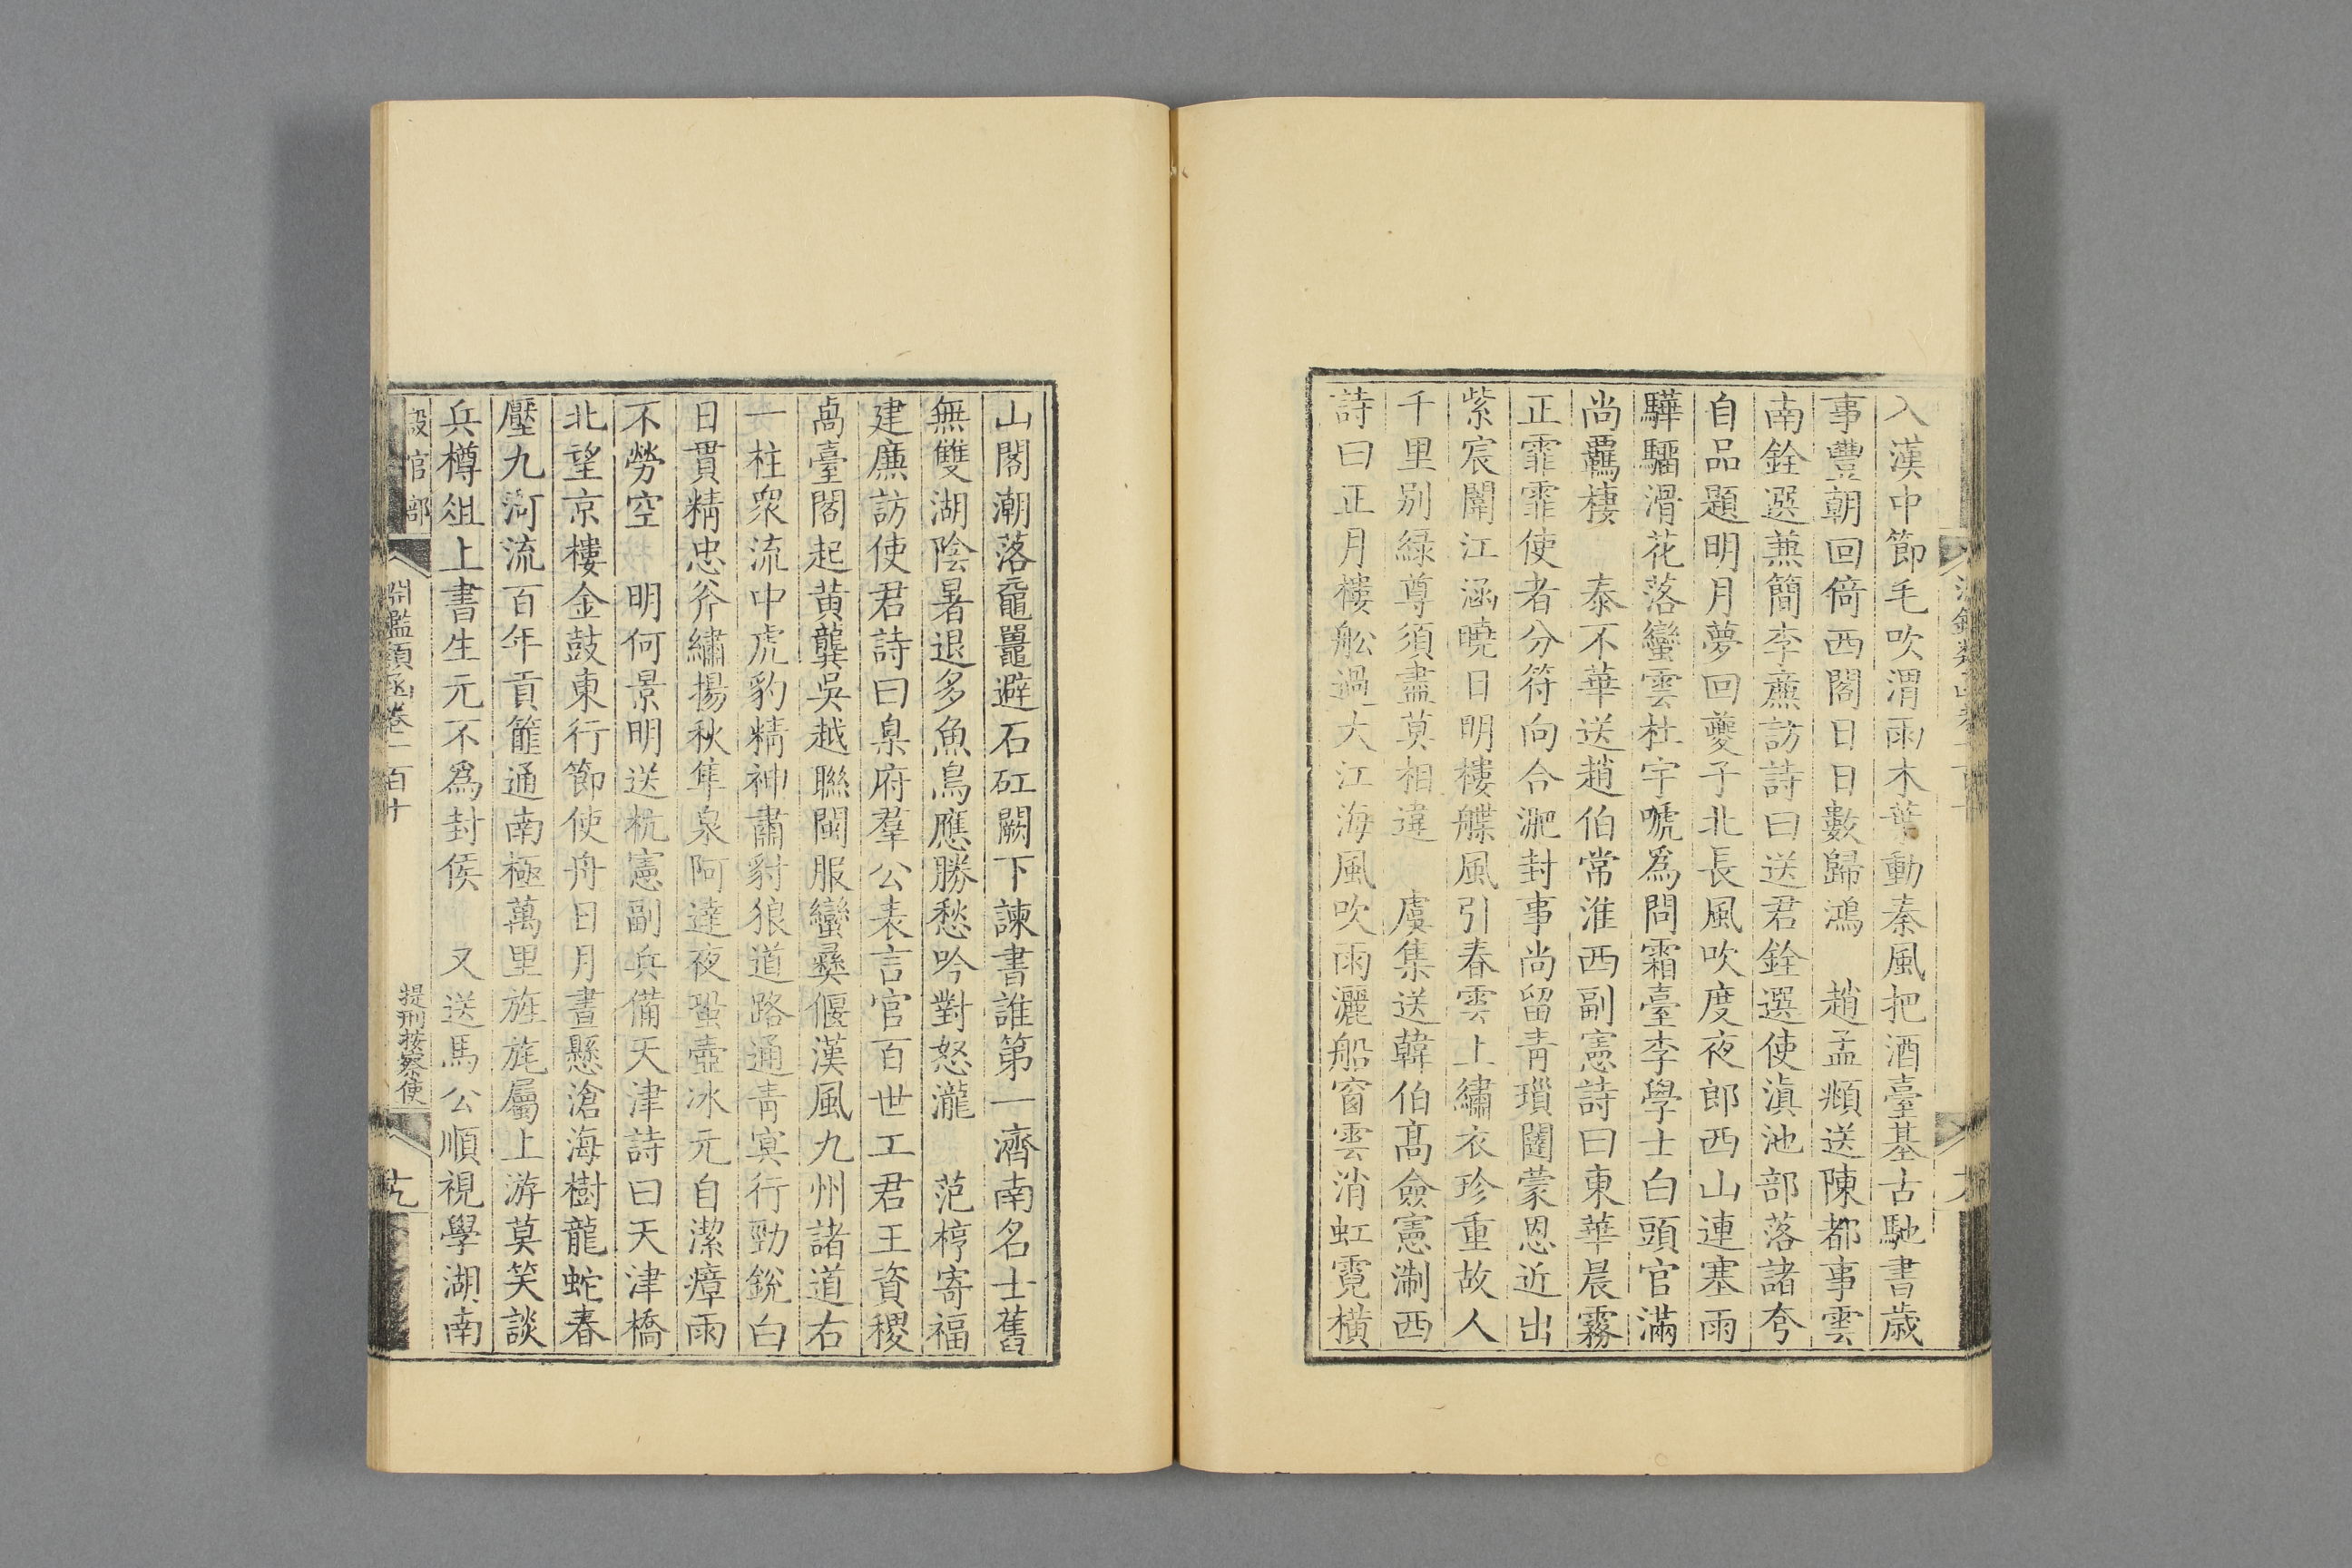 入漢中節毛吹渭雨木葉動秦風把酒臺基古馳書歲
事豐朝回倚西閣日日數歸鴻　趙孟頫送陳都事雲
南銓選兼簡李廉訪詩曰送君銓選使滇池部落諸夸
自品題明月夢回夔子北長風吹度夜郎西山連塞雨
驊騮滑花落蠻雲杜宇嗁爲問霜臺李學士白頭官滿
尚羈棲　泰不華送趙伯常淮西副憲詩曰東華晨霧
正霏霏使者分符向合淝封事尚留青瑣闥蒙恩近出
紫宸闈江涵曉日明樓艓風引春雲上繡衣珍重故人
千里别緑尊須盡莫相違　虞集送韓伯髙僉憲淛西
詩曰正月樓舩過大江海風吹雨灑船窗雲消虹霓橫
山閣潮落黿鼉避石矼闕下諫書誰第一濟南名士舊
無雙湖陰暑退多魚鳥應勝愁吟對怒瀧　范梈寄福
建廉訪使君詩曰臬府羣公表言官百世工君王資稷
卨臺閣起黃龔吳越聯閩服蠻彞偃漢風九州諸道右
一柱衆流中虎豹精神肅豺狼道路通青冥行勁銳白
日貫精忠斧繡揚秋隼泉阿達夜蛩壺冰元自潔瘴雨
不勞空　明何景明送杭憲副兵備天津詩曰天津橋
北望京樓金鼓東行節使舟日月晝懸滄海樹龍蛇春
壓九河流百年貢篚通南極萬里旌旄屬上游莫笑談
兵樽俎上書生元不爲封侯　又送馬公順視學湖南
設官部
淵鑑類函卷一百十
提刑按察使